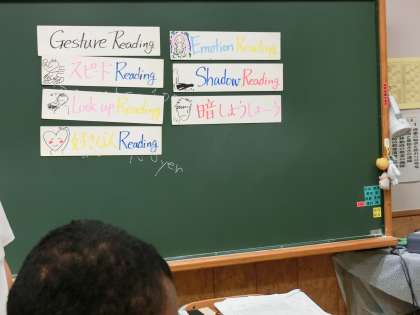 Gesture Reading
スピード Reading
Look up Reading
Reading
Emotion Reading
Shadow Reading
暗しょうしよーう
yen